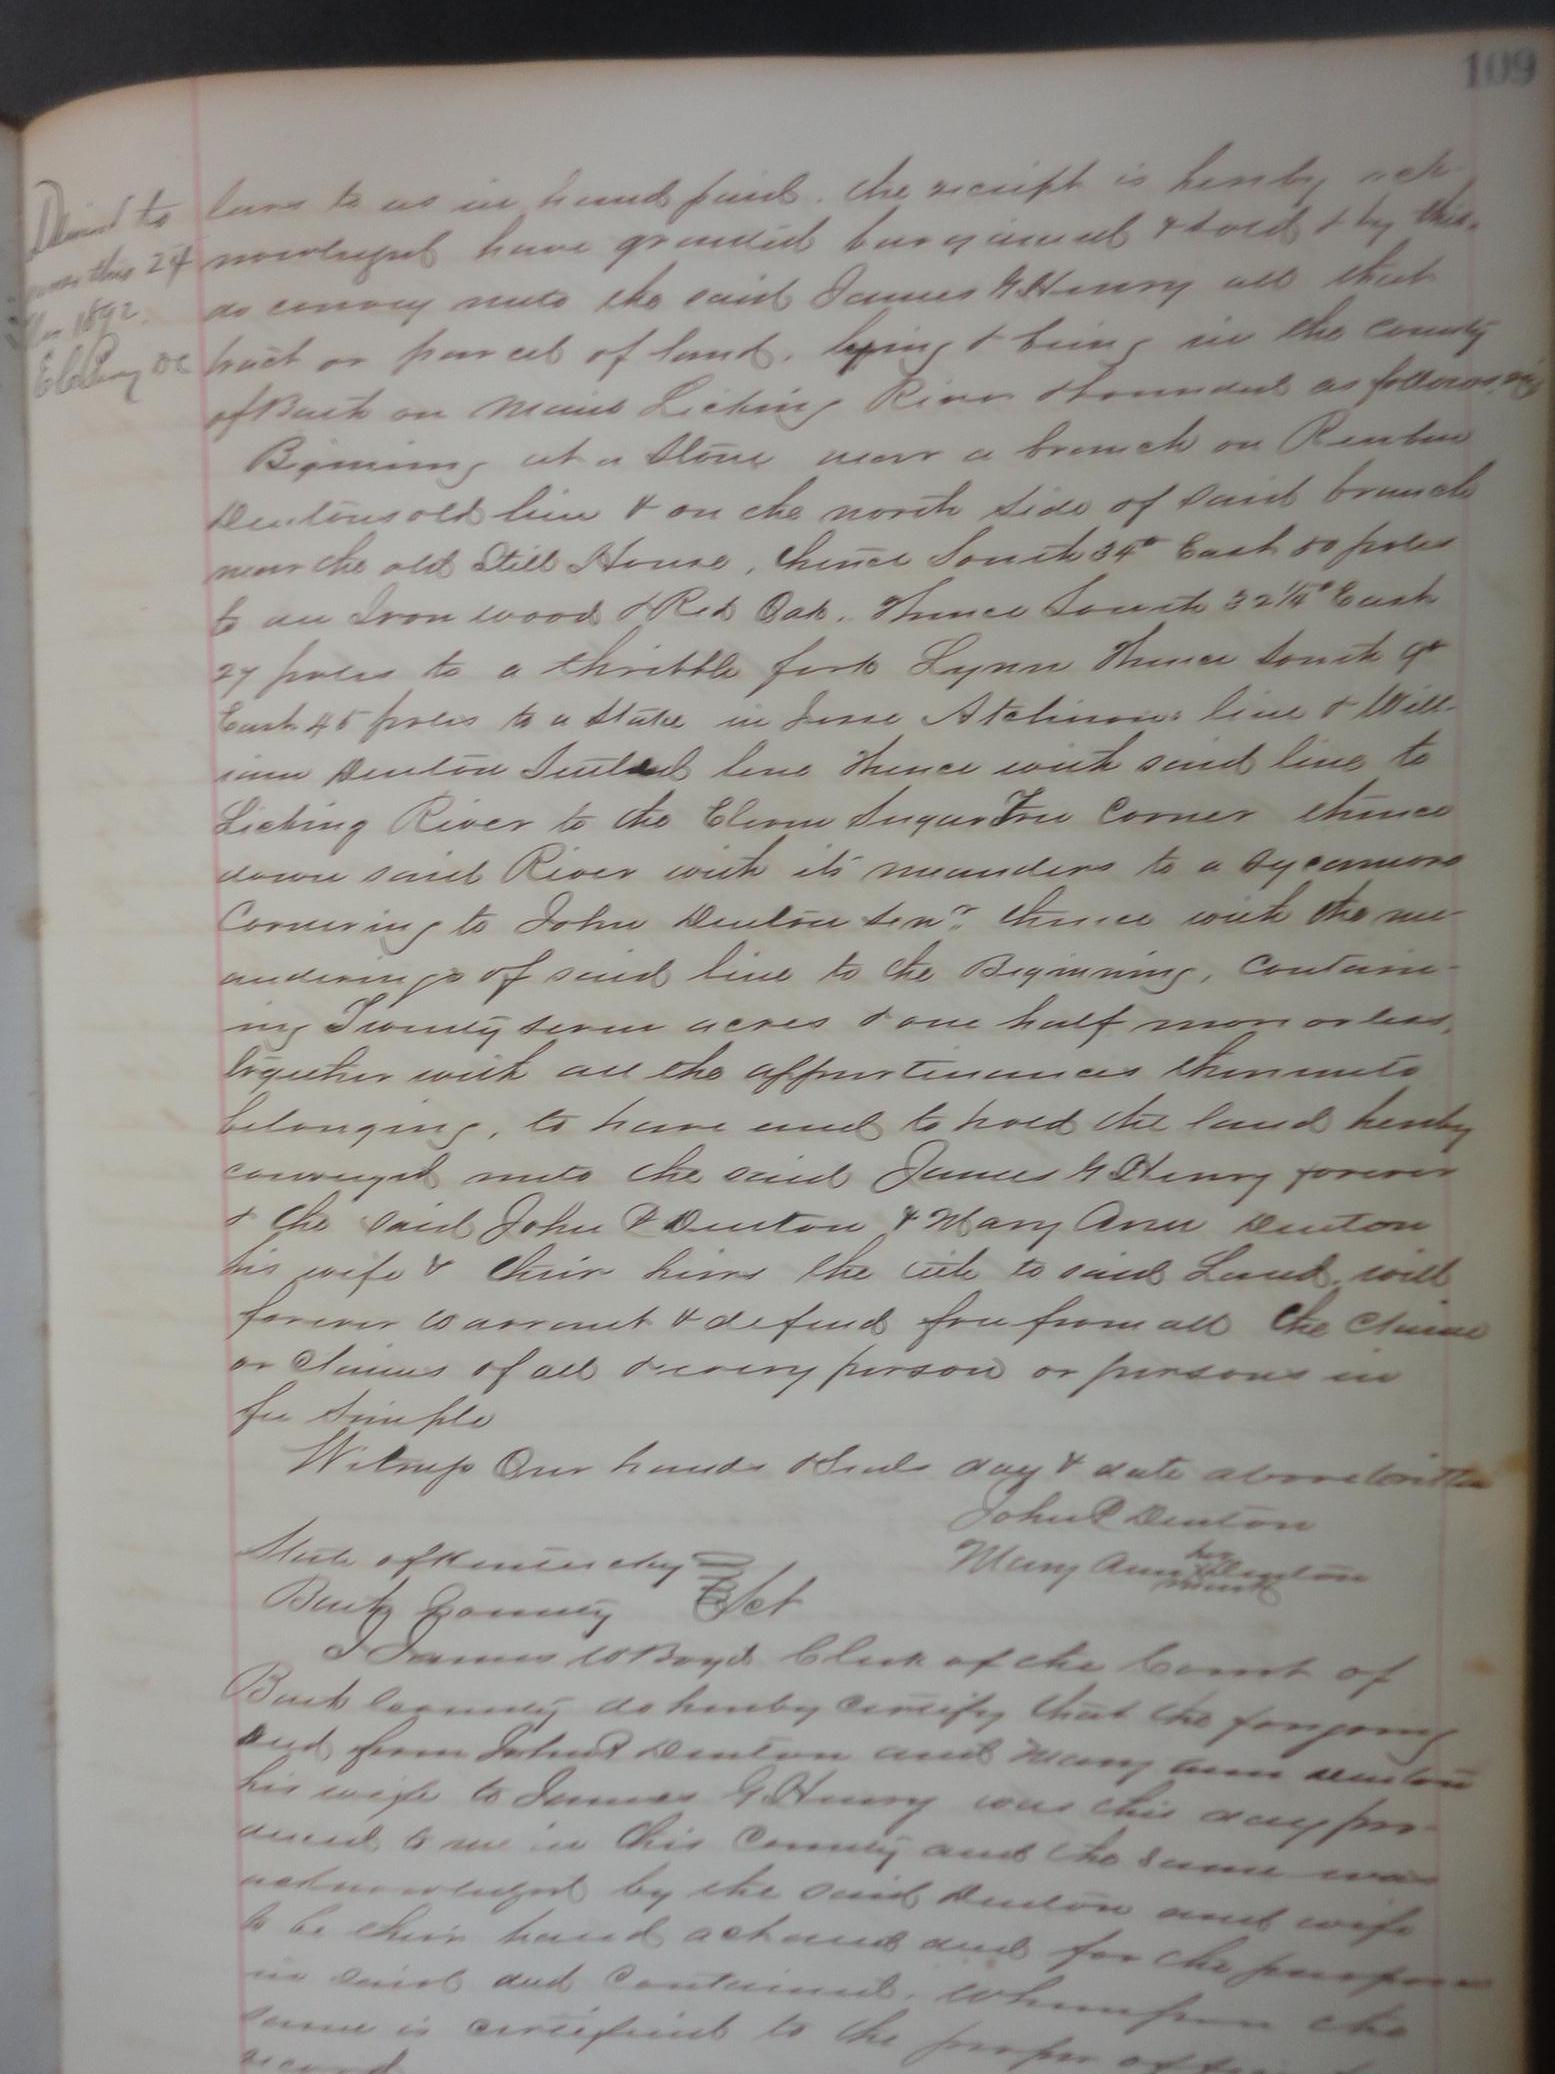 109
this 24
1892.
lars to us in hand paid, the receipt is hereby ack-
nowledged have granted bargained & sold & by this
do convey unto the said James G Henry all that
tract or parcel of land, lying & being in the county
of Bath on main Licking River & bounded as follows viz
Begining at a Stone near a branch on Reuben
Dentons old line & on the north side of said branch
near the old Still House, thence South 34° East 50 poles
to an Iron wood & Red Oak. Thence South 32 1/4° East
27 poles to a thribble fork Lynn Thence South 9°
East 45 poles to a Stake in Jesse Atchisons line & Will-
iam Denton line Thence with said line to
Licking River to the Sugar Tree Corner thence
down said River with its meanders to a Sycamore
Cornering to John Denton Senr. thence with the me-
anderings of said line to the Begining, Contain-
ing Twenty seven acres & one half more or less,
together with all the appurtinances thereunto
belonging, to have and to hold the land hereby
conveyed unto the said James G Henry forever
& the said John P Denton & Mary Ann Denton
his wife & their heirs the title to said Land, will
forever warrant & defend free from all the claim
or claims of all & every person or persons in
fee simple
Witness Our hands & Seals day & date above written
John P Denton
Mary Ann her x mark Denton
State of Kentucky
Bath County Sct
I James W Boyd Clerk of the Court of
Bath County do hereby certify that the foregoing
deed from John P Denton and Mary Ann Denton
his wife to James G Henry was this day pro-
duced to me in this County and the same was
acknowledged by the said Denton and wife
to be their hand act and deed for the purposes
in said deed contained. Whereupon the
same is certified to the proper office
record